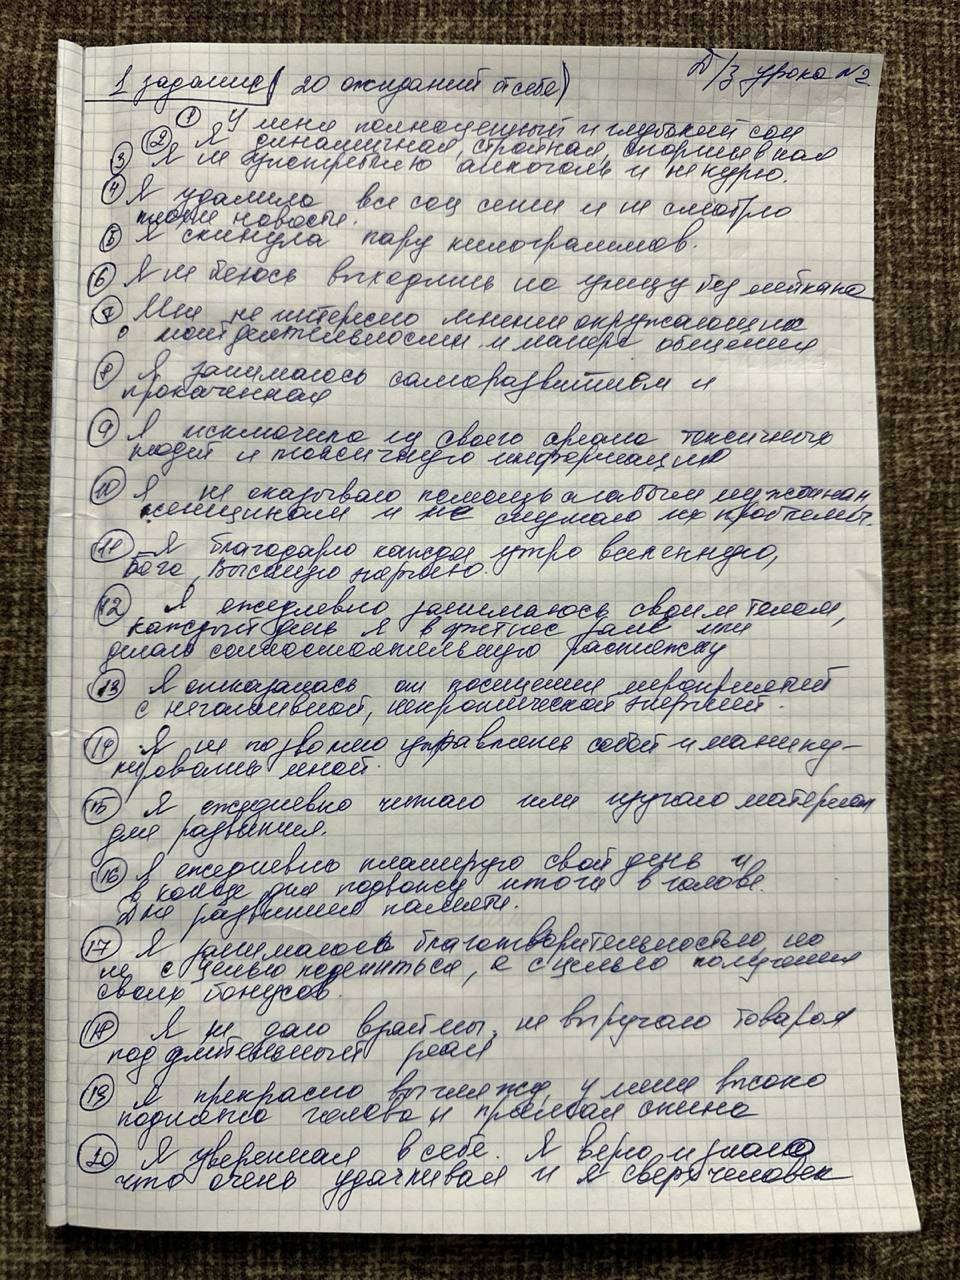 Д/з урока №2
1 задание (20 ожиданий от себя)
1 У меня полноценный и глубокий сон
2 Я динамичная, стройная, спортивная
3 Я не употребляю алкоголь и не курю.
4 Я удалила все соц сети и не смотрю
плохие новости.
5 Я скинула пару килограммов.
6 Я не боюсь выходить на улицу без мейкапа
7 Мне не интересно мнение окружающих
о моей деятельности и манере общения
8 Я занимаюсь саморазвитием и
прокаченная
9 Я исключила из своего ареала токсичных
людей и токсичную информацию
10 Я не оказываю помощь слабым мужчинам
женщинам и не слушаю их проблемы.
11 Я благодарю каждое утро вселенную,
Бога, Высшую
12 Я ежедневно занимаюсь своим телом,
каждый день я в фитнес зале или
делаю самостоятельную растяжку
13 Я отказалась от посещения мероприятий
с негативной, некротической энергией.
14 Я не позволяю управлять собой и манипу-
лировать мной.
15 Я ежедневно читаю или изучаю материал
для развития.
16 Я ежедневно планирую свой день и
в конце дня подвожу итоги в голове.
Для развития памяти.
17 Я занимаюсь благотворительностью, но
не с целью поделиться, а с целью получения
своих бонусов.
18 Я не даю взаймы, не выручаю товаром
под длительный реал
19 Я прекрасно выгляжу, у меня высоко
поднята голова и прямая спина
20 Я уверенная в себе. Я верю и знаю
что очень удачливая и я сверхчеловек